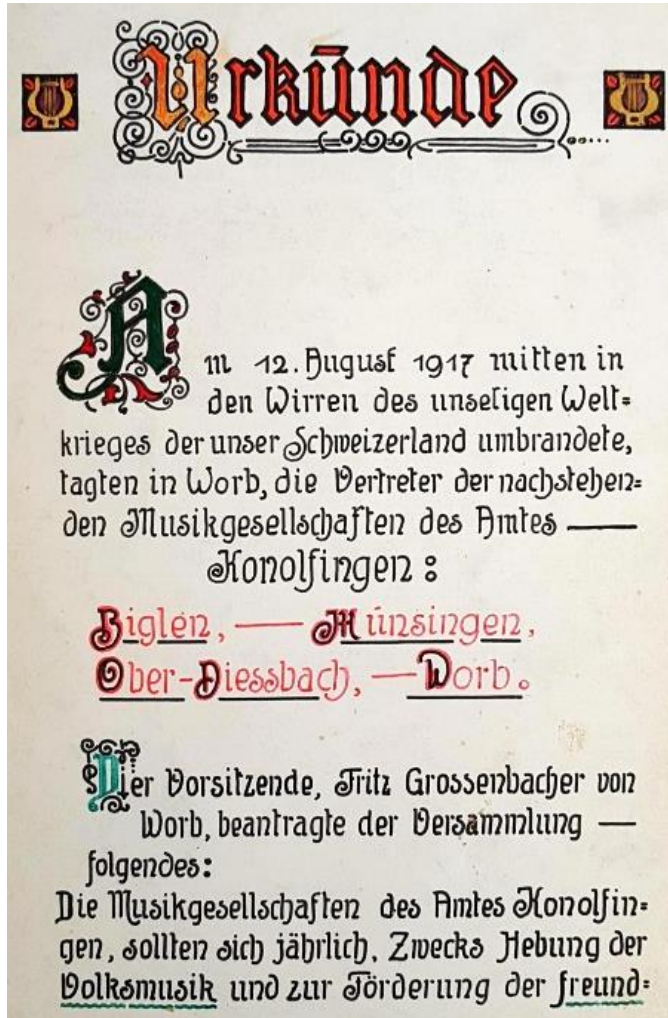 Urkūnde
Am 12. August 1917 mitten in
den Wirren des unseligen Welt=
krieges der unser Schweizerland umbrandete,
tagten in Worb, die Vertreter der nachstehen=
den Musikgesellschaften des Amtes —
Konolfingen :
Biglen, — Münsingen,
Ober-Diessbach, — Worb.
Der Vorsitzende, Fritz Grossenbacher von
Worb, beantragte der Versammlung —
folgendes:
Die Musikgesellschaften des Amtes Konolfin=
gen, sollten sich jährlich, Zwecks Hebung der
Volksmusik und zur Förderung der freund=